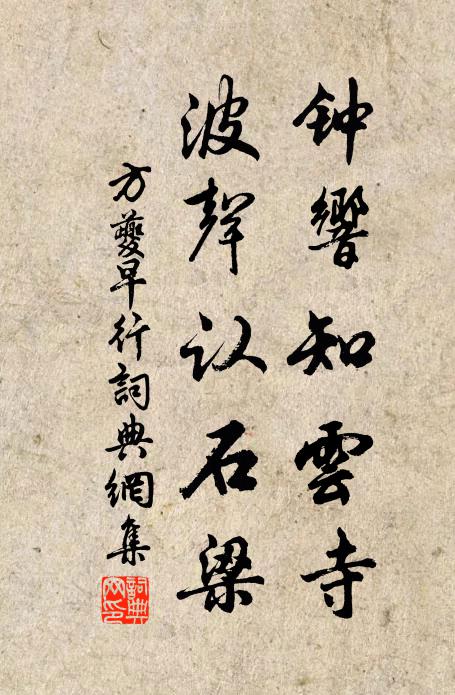 钟響知雲寺
波聲认石梁
方夔早行詞典網集
詞典網印